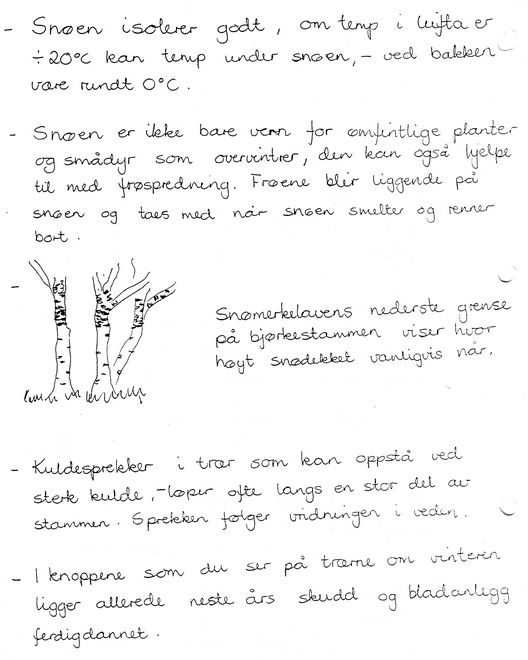 - Snøen isolerer godt, om temp i lufta er
÷20°C kan temp under snøen, - ved bakken
være rundt 0°C.
- Snøen er ikke bare vern for ømfintlige planter
og smådyr som overvintrer, den kan også hjelpe
til med frøspredning. Frøene blir liggende på
snøen og taes med når snøen smelter og renner
bort.
- Snømerkelavens nederste grense
på bjørkestammen viser hvor
høyt snødekket vanligvis når.
- Kuldesprekker i trær som kan oppstå ved
sterk kulde, - løper ofte langs en stor del av
stammen. Sprekken følger vridningen i veden.
- I knoppene som du ser på trærne om vinteren
ligger allerede neste års skudd og bladanlegg
ferdigdannet.